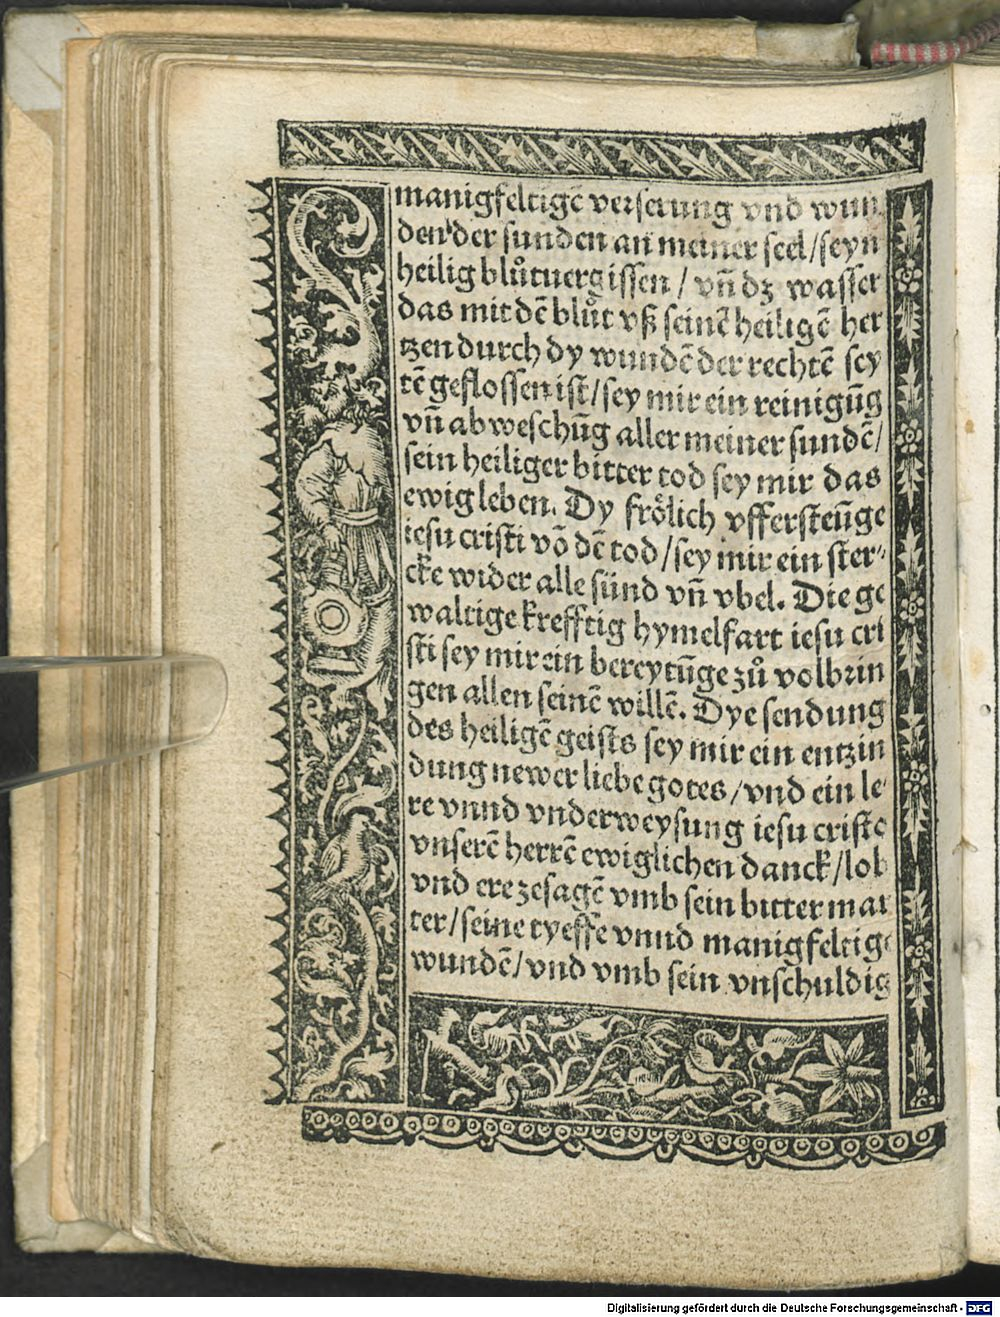 manigfeltigē verserung vnd wun
den der sunden an meiner seel/seyn
heilig blůtuergissen / vn̄ dz wasser
das mit dē blůt vß seinē heiligē her
tzen durch dy wundē der rechtē sey
tē geflossen ist/sey mir ein reinigūg
vn̄ abweschūg aller meiner sundē/
sein heiliger bitter tod sey mir das
ewig leben. Dy frölich vffersteūge
iesu cristi vō dē tod/sey mir ein ster-
cke wider alle sünd vn̄ vbel. Die ge
waltige krefftig hymelfart iesu cri
sti sey mir ein bereytūge zů volbrin
gen allen seinē willē. Dye sendung
des heiligē geists sey mir ein entzin
dung newer liebe gotes/vnd ein le
re vnnd vnderweysung iesu cristo
vnserē herrē ewiglichen danck/lob
vnd ere zesagē vmb sein bitter mar
ter/seine tyeffe vnnd manigfeltige
wundē/vnd vmb sein vnschuldig
Digitalisierung gefördert durch die Deutsche Forschungsgemeinschaft - DFG